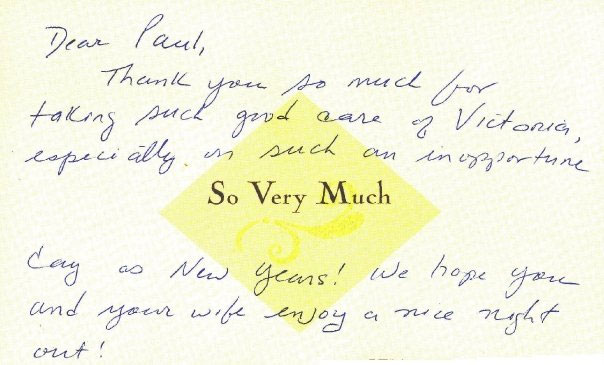 Dear Paul,
Thank you so much for
taking such good care of Victoria,
especially on such an inopportune
So Very Much
day as New Years! We hope you
and your wife enjoy a nice night
out!